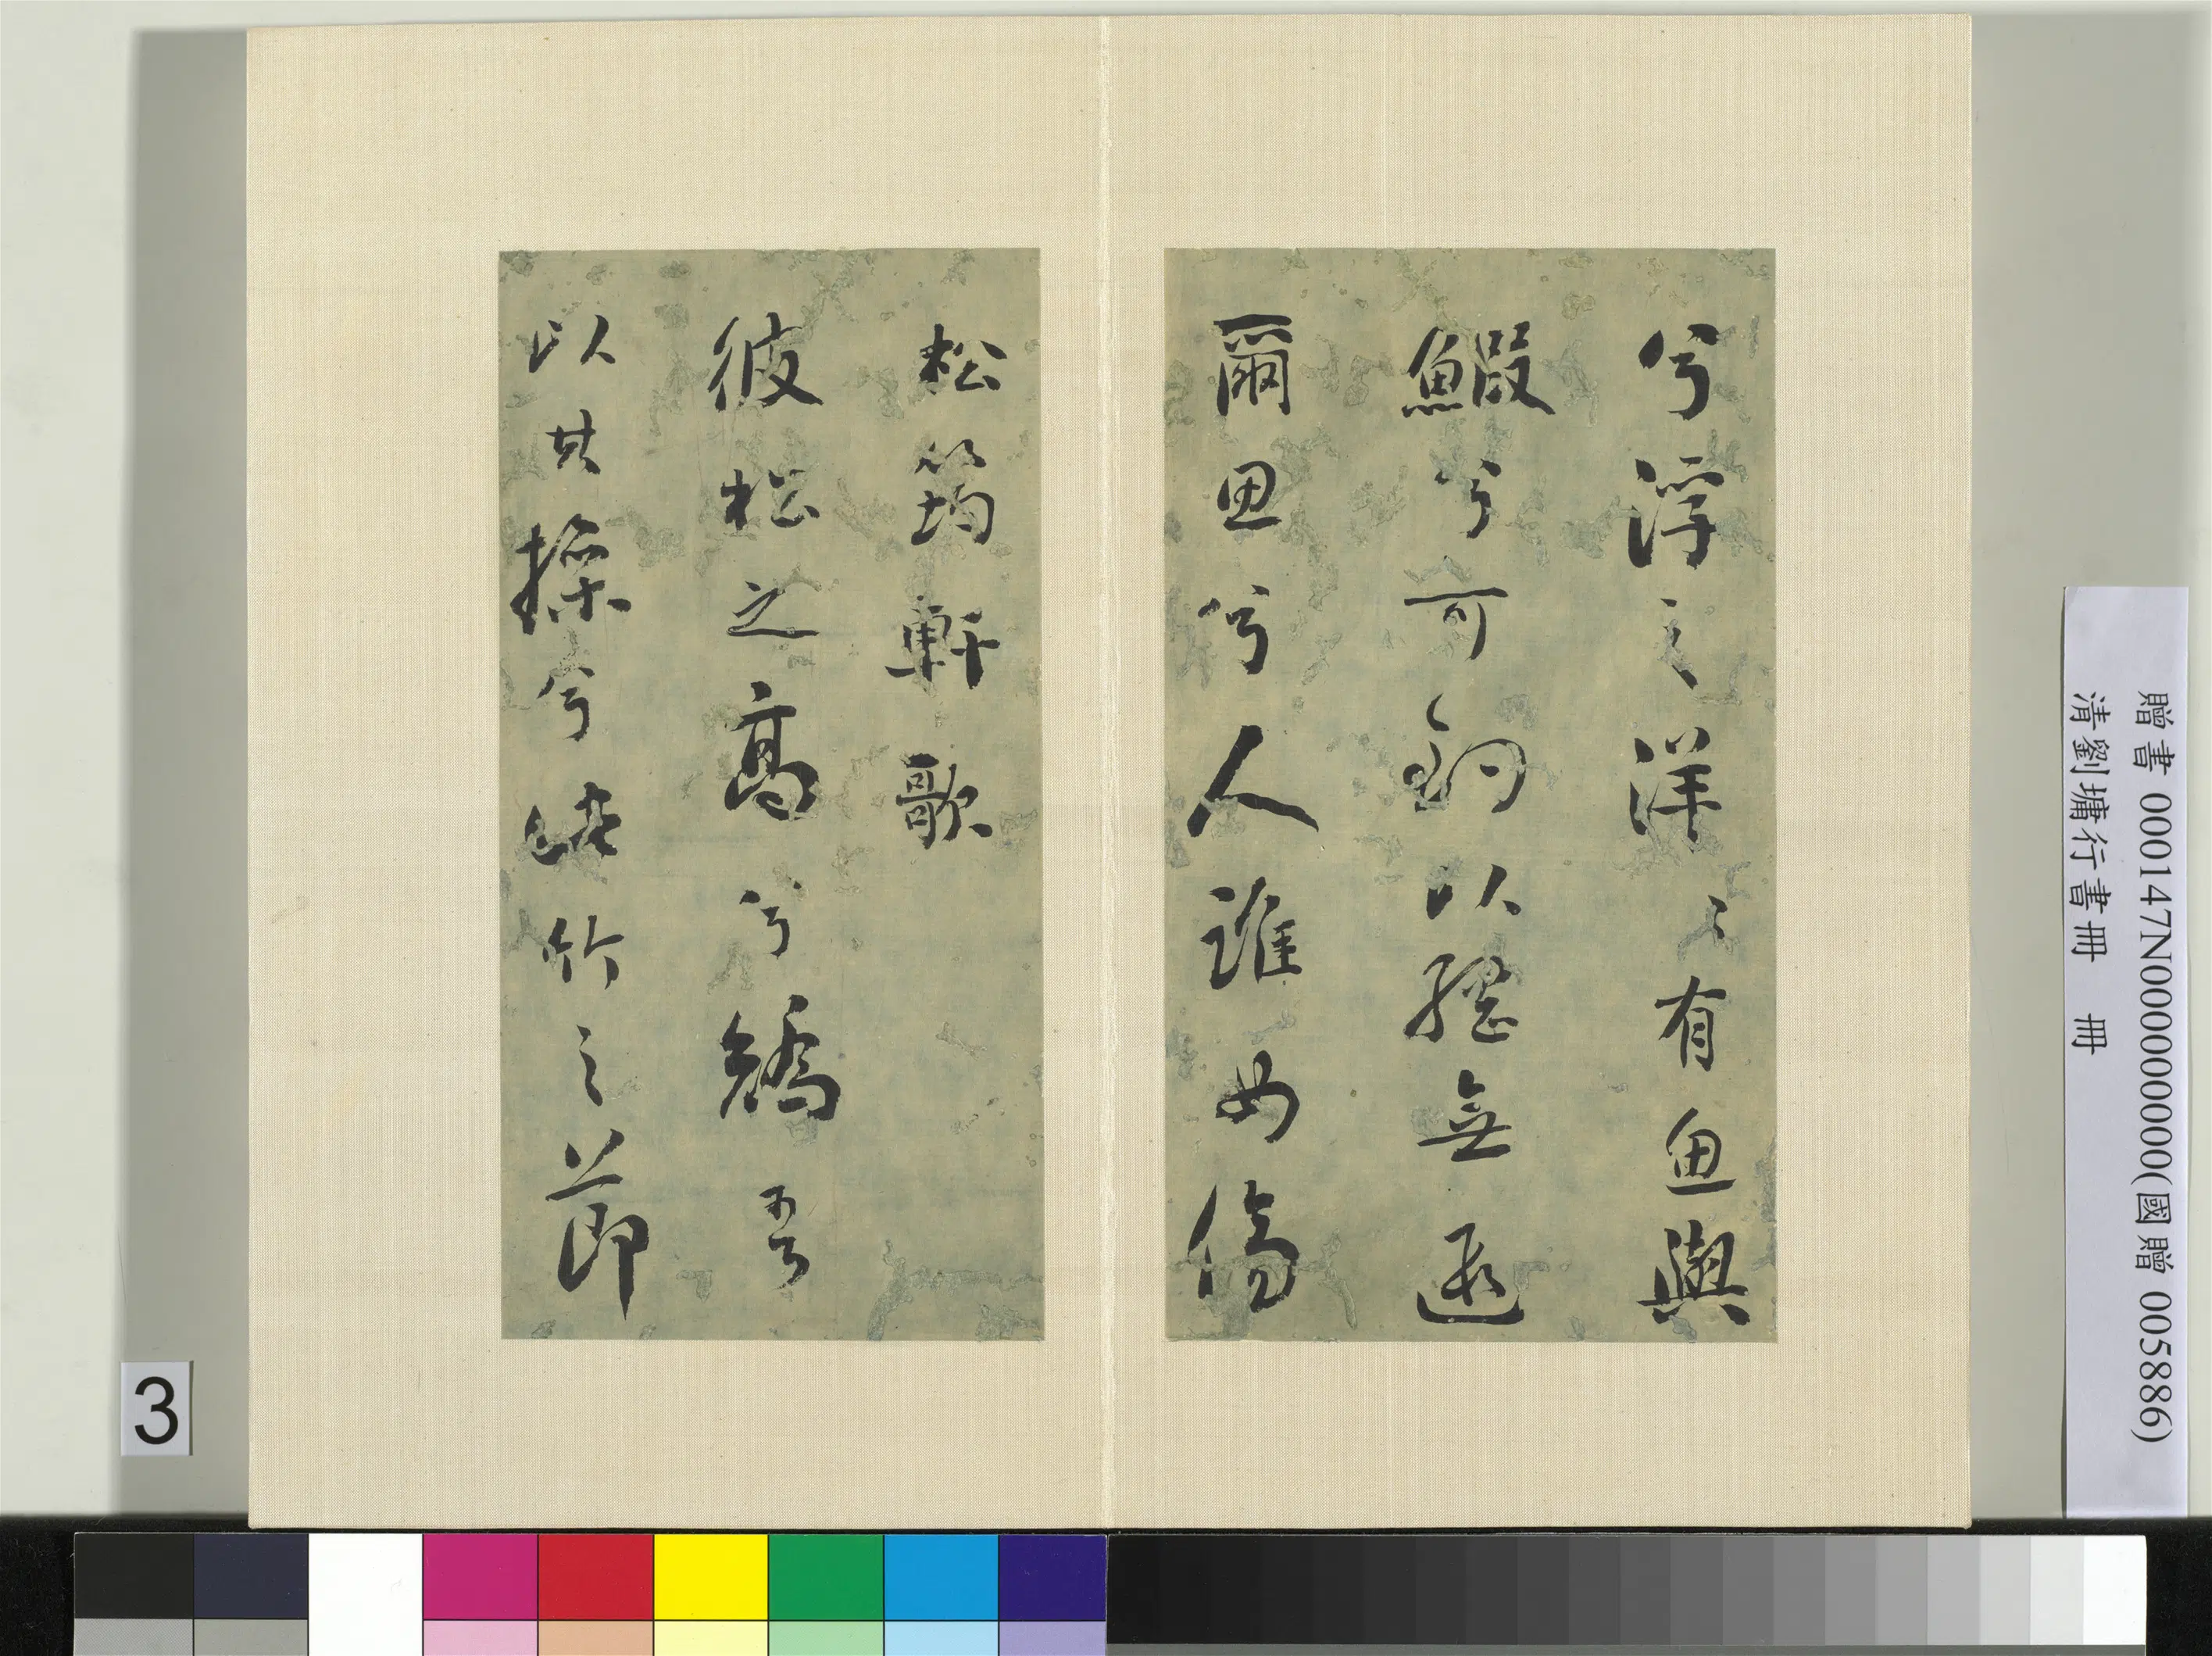 兮浮之洋〻有魚與
鰕兮可釣以無遐
爾思兮人誰女傷
松筠軒歌
彼松之高兮矯吾
以其操兮此竹之節
贈書 000147N000000000(國贈 005886)
清劉墉行書冊 冊
3